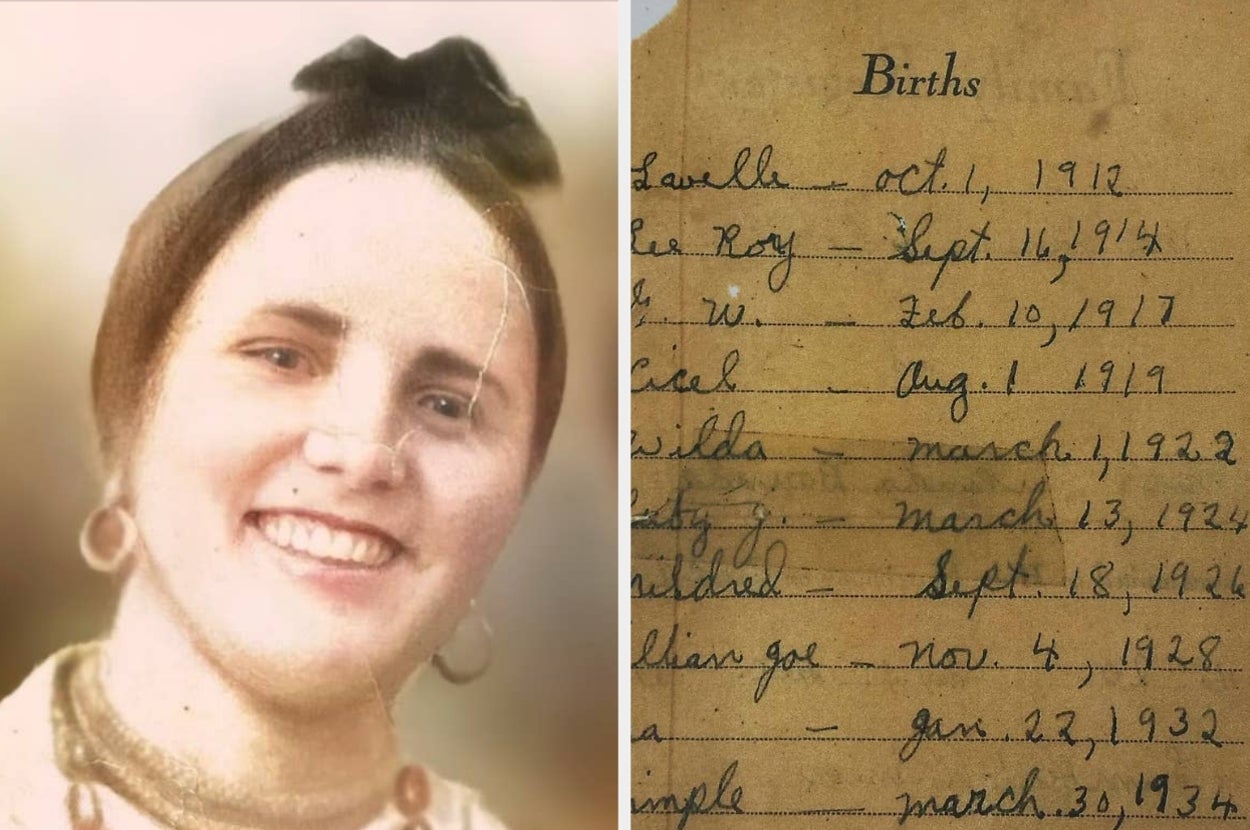 Births
Lavelle – Oct. 1, 1912
Lee Roy – Sept. 16, 1914
W. – Feb. 10, 1917
Cicel - Aug. 1 1919
Wilda – March 1, 1922
J. – March 13, 1924
Mildred – Sept. 18, 1926
Joe – Nov. 4, 1928
a – Jan. 22, 1932
imple — March. 30, 1934